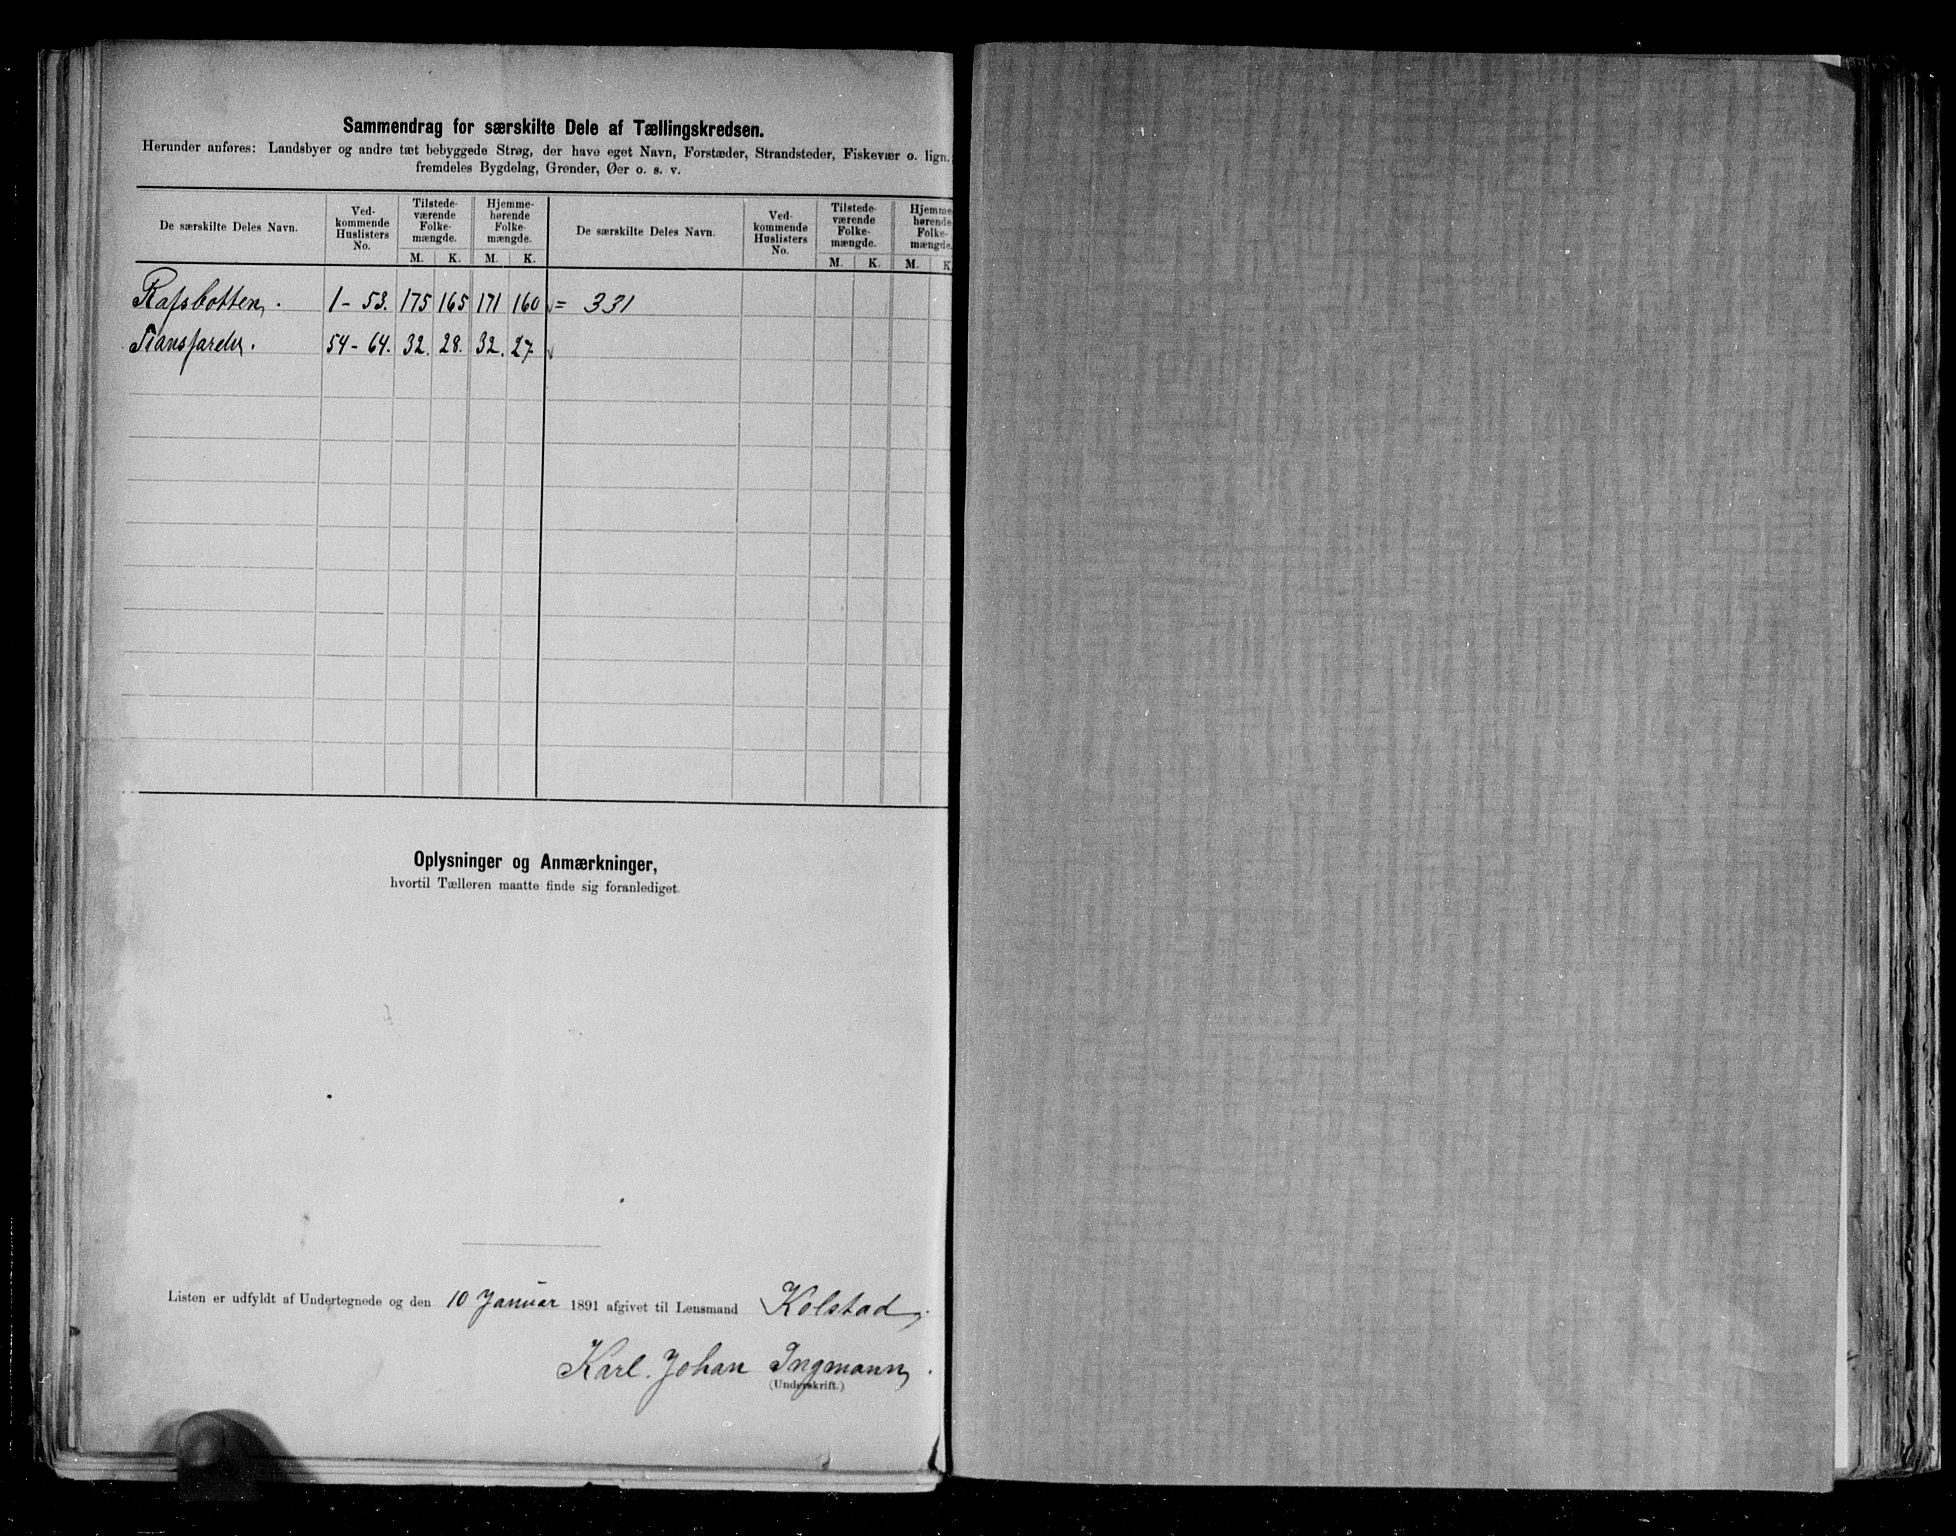 Sammendrag for særskilte Dele af Tællingskredsen.
Herunder anføres: Landsbyer og andre tæt bebyggede Strøg, der have eget Navn, Forstæder, Strandsteder, Fiskevær o. lign.
fremdeles Bygdelag, Grender, Øer o. s. v.
De særskilte Deles Navn. Ved-kommende Huslisters No. Tilstede-værende Folke-mængde. Hjemme-hørende Folke-mængde. De særskilte Deles Navn. Ved-kommende Huslisters No. Tilstede-værende Folke-mængde. Hjemme-hørende Folke-mængde.
M. K. M. K. M. K. M. K
Rafsbotten. 1 - 53. 175 165 171 160 = 331
54 - 64. 32. 28. 32. 27
Oplysninger og Anmærkninger,
hvortil Tælleren maatte finde sig foranlediget.
Listen er udfyldt af Undertegnede og den 10 Januar 1891 afgivet til Lensmand Kolstad.
Karl. Johan Ingmann.
(Underskrift.)